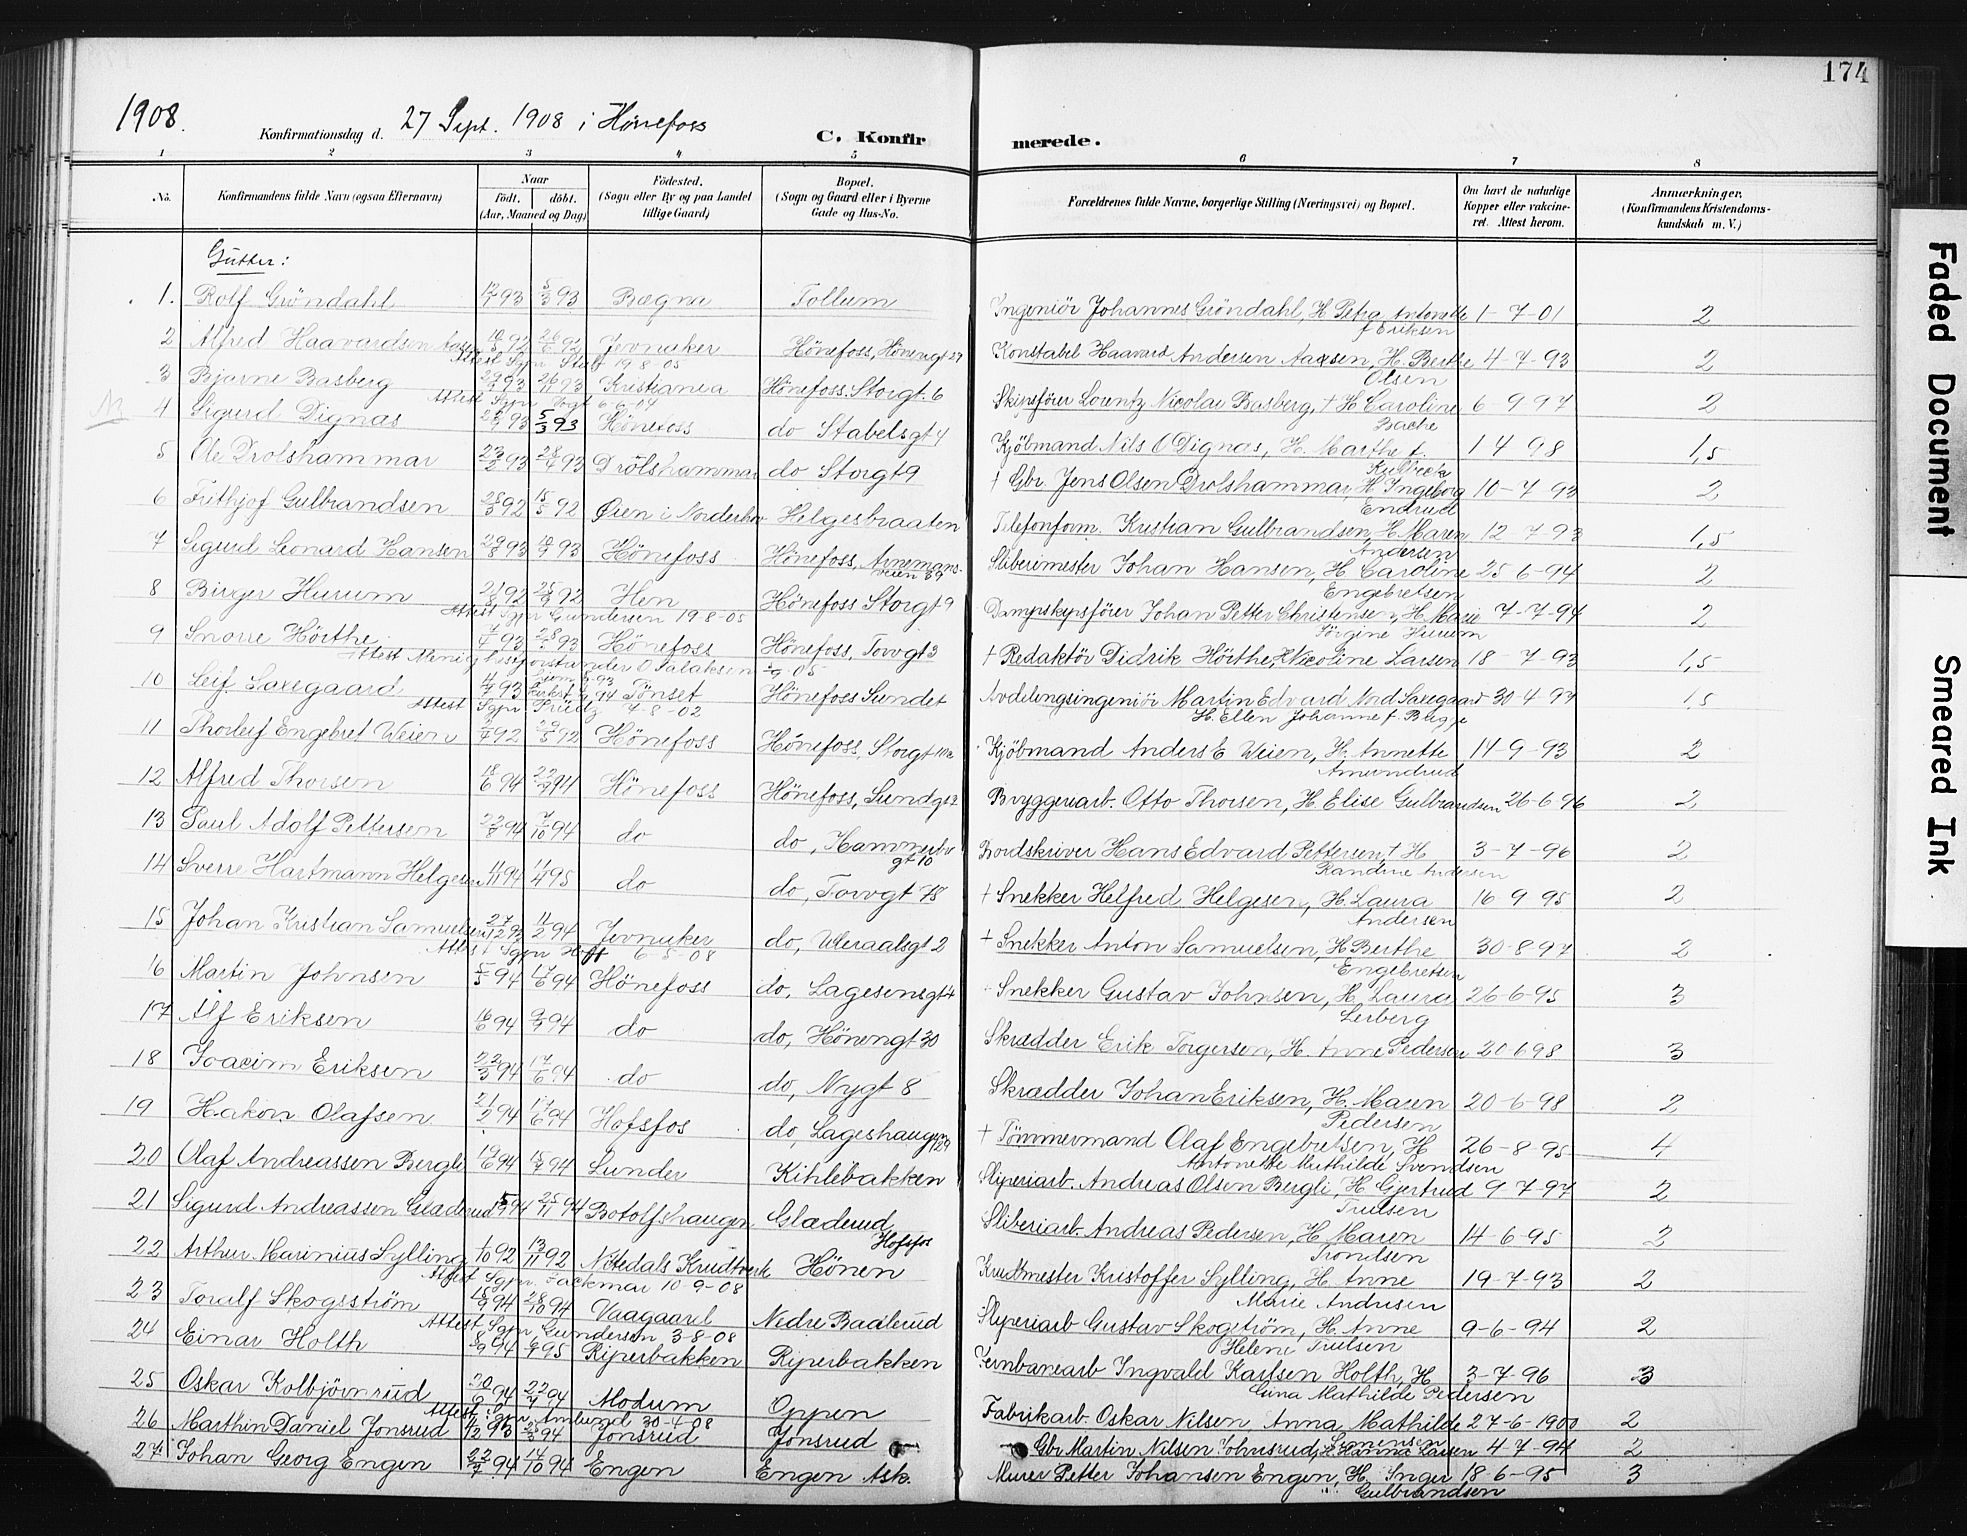 174
1908.
Konfirmationsdag d. 27 Sept. 1908 i Hönefoss
C. Konfirmerede.
1 2 3 4 5 6 7 8
No. Konfirmandens fulde Navn (ogsaa Efternavn) Naar Födt. döbt. (Aar, Maaned og Dag) Födested. (Sogn eller By og paa Landet tillige Gaard) Bopæl. (Sogn og Gaard eller i Byerne Gade og Hus-No. Forældrenes fulde Navne, borgerlige Stilling (Næringsvei) og Bopæl. Om havt de naturlige Kopper eller vakcineret. Attest herom. Anmærkninger. (Konfirmandens Kristendomskundskab m. V.)
Gutter:
1. Rolf Gröndahl 93 5/3 93 Bægna Tollum Ingeniör Johannes Gröndahl, H. Petra Antonette f. Eriksen 1-7-01 2
2 Alfred Haavardsen Aasen 92 26/6 92 Jevnaker Hönefoss, Hönengt 27 Konstabel Haavard Andersen Aasen, H. Berthe Olsen 4-7-93 2
Attest Sgpr. 19-8-05
3 Bjarne Basberg 93 26/11 93 Kristiania Hönefoss, Storgt. 6 Skipsförer Lorentz Nicolai Basberg, † H. Caroline Bache 6-9-97 2
Attest Sgpr. Vogt 6-6-04
4 Sigurd Dignas 93 5/3 93 Hönefoss do Stabelsgt 4 Kjöbmand Nils O Dignas, H. Marthe f. 1 4 98 1,5
5 Ole Drolshammar 23/2 93 93 Drölshammar do Storgt 9 † Gbr. Jens Olsen Drolshammar, H. Ingeborg Endrud 10-7 93 2
6 Frithjof Gulbrandsen 28/3 92 15/5 92 Öien i Norderhov Helgesbraaten Telefonform. Kristian Gulbrandsen, H. Maren Andersen 12-7-93 1,5
7 Sigurd Leonard Hansen 29/8 93 93 Hönefoss Hönefoss, Arnemansveien 39 Sliberimester Johan Hansen, H. Caroline Engebretsen 25 6-94 2
8 Birger Hurum 92 92 Hen Hönefoss Storgt 9 Dampskipsförer Johan Petter Christensen, H. Marie Jörgine Hurum 7-7-94 2
Attest Sgpr Gundersen 19 8-05
9 Snorre Hörthe 93 93 Hönefoss Hönefoss, Torvgt 3 † Redaktör Didrik Hörthe, H. Nicoline Larsen 18-7-93 1,5
Attest Menighedsforstander O Salaksen 05
10 Leif Saxegaard 93 Tönset Hönefoss Sundet Avdelingsingeniör Martin Edvard Nord Saxegaard H. Ellen Johanne f. Brügge 30-4-97 1,5
Attest Sgpr. 7-8-02
11 Thorleif Engebret Weien 92 92 Hönefoss Hönefoss, Storgt Kjöbmand Anders E Weien, H. Annette Amundrud 14-9-93 2
12 Alfred Thorsen 18/6 94 94 Hönefoss Hönefoss, Sundgt Bryggeriarb. Otto Thorsen, H. Elise Gulbrandsen 26-6-96 2
13 Paul Adolf Pettersen 94 7/10 94 do do, Hammerbrogt 10 Bordskriver Hans Edvard Pettersen, † H Randine Andersen 3-7-96 2
14 Sverre Hartmann Helgesen 94 95 do do, Torvgt 78 † Snekker Helfred Helgesen, H. Laura Andersen 16-9 95 2
15 Johan Kristian Samuelsen 27/12 93 11/2 94 Jevnaker do, Ulleraalsgt 2 † Snekker Anton Samuelsen, H Berthe Engebretsen 30-8-97 2
Attest Sgpr Hofft 6-5-08
16 Martin Johnsen 94 17/6 94 Hönefoss do, Lagesensgt 4 Snekker Gustav Johnsen, H. Laura Lerberg 26-6-95 3
17 Alf Eriksen 16/6 94 94 do do, Hönengt 30 Skrædder Erik Torgersen, H. Anne Pedersen 20-6 98 3
18 Joacim Eriksen 22/3 94 17/6 94 do do, Nygt 8 Skrædder Johan Eriksen, H. Maren Pedersen 20-6-98 2
19 Hakon Olafsen 21/2 94 17/6 94 Hofsfos do, Lageshaugen † Tömmermand Olaf Engebretsen, H Antonette Mathilde Svendsen 26-8-95 4
20 Olaf Andreassen Bergli 94 94 Lunder Kihlebakken Sliperiarb. Andreas Olsen Bergli, H Gjertrud Trulsen 9 7-97 2
21 Sigurd Andreassen Glæderud 94 25/11 94 Botolfshaugen Glæderud Hofsfos Sliberiarb. Andreas Pedersen, H Maren Trondsen 14-6-95 2
22 Arthur Marinius Sylling 1/10 92 13/11 92 Nitedals Krudtverk Hönen Krudtmester Kristoffer Sylling, H. Anne Marie Andresen 19-7-93 2
Attest Sgpr. Tackmar 10 9-08
23 Toralf Skogsström 94 28/10 94 Vaagaard Nedre Baalerud Sliperiarb Gustav Skogström, H. Anne Helene Trulsen 9-6-94 2
Attest Sgpr Gundersen 3-8-08
24 Einar Holth 94 95 Riperbakken Riperbakken Jernbanearb Ingvald Karlsen Holth, H. Gina Mathilde Pedersen 3-7-96 3
25 Oskar Kolbjörnrud 94 94 Modum Oppen Fabrikarb. Oskar Nilsen, Anna Mathilde 27-6-1900 2
Attest Sgpr. Amlund 30-4-08
26 Marthin Daniel Jonsrud 93 94 Jonsrud Jonsrud Gbr Martin Nilsen Johnsrud, H. Hanna Larsen 4-7-94 2
27. Johan Georg Engen 94 14/10 94 Engen Engen Ask. Murer Petter Johansen Engen, H. Inger Gulbrandsen 18-6-95 3
Faded Document
Smeared Ink